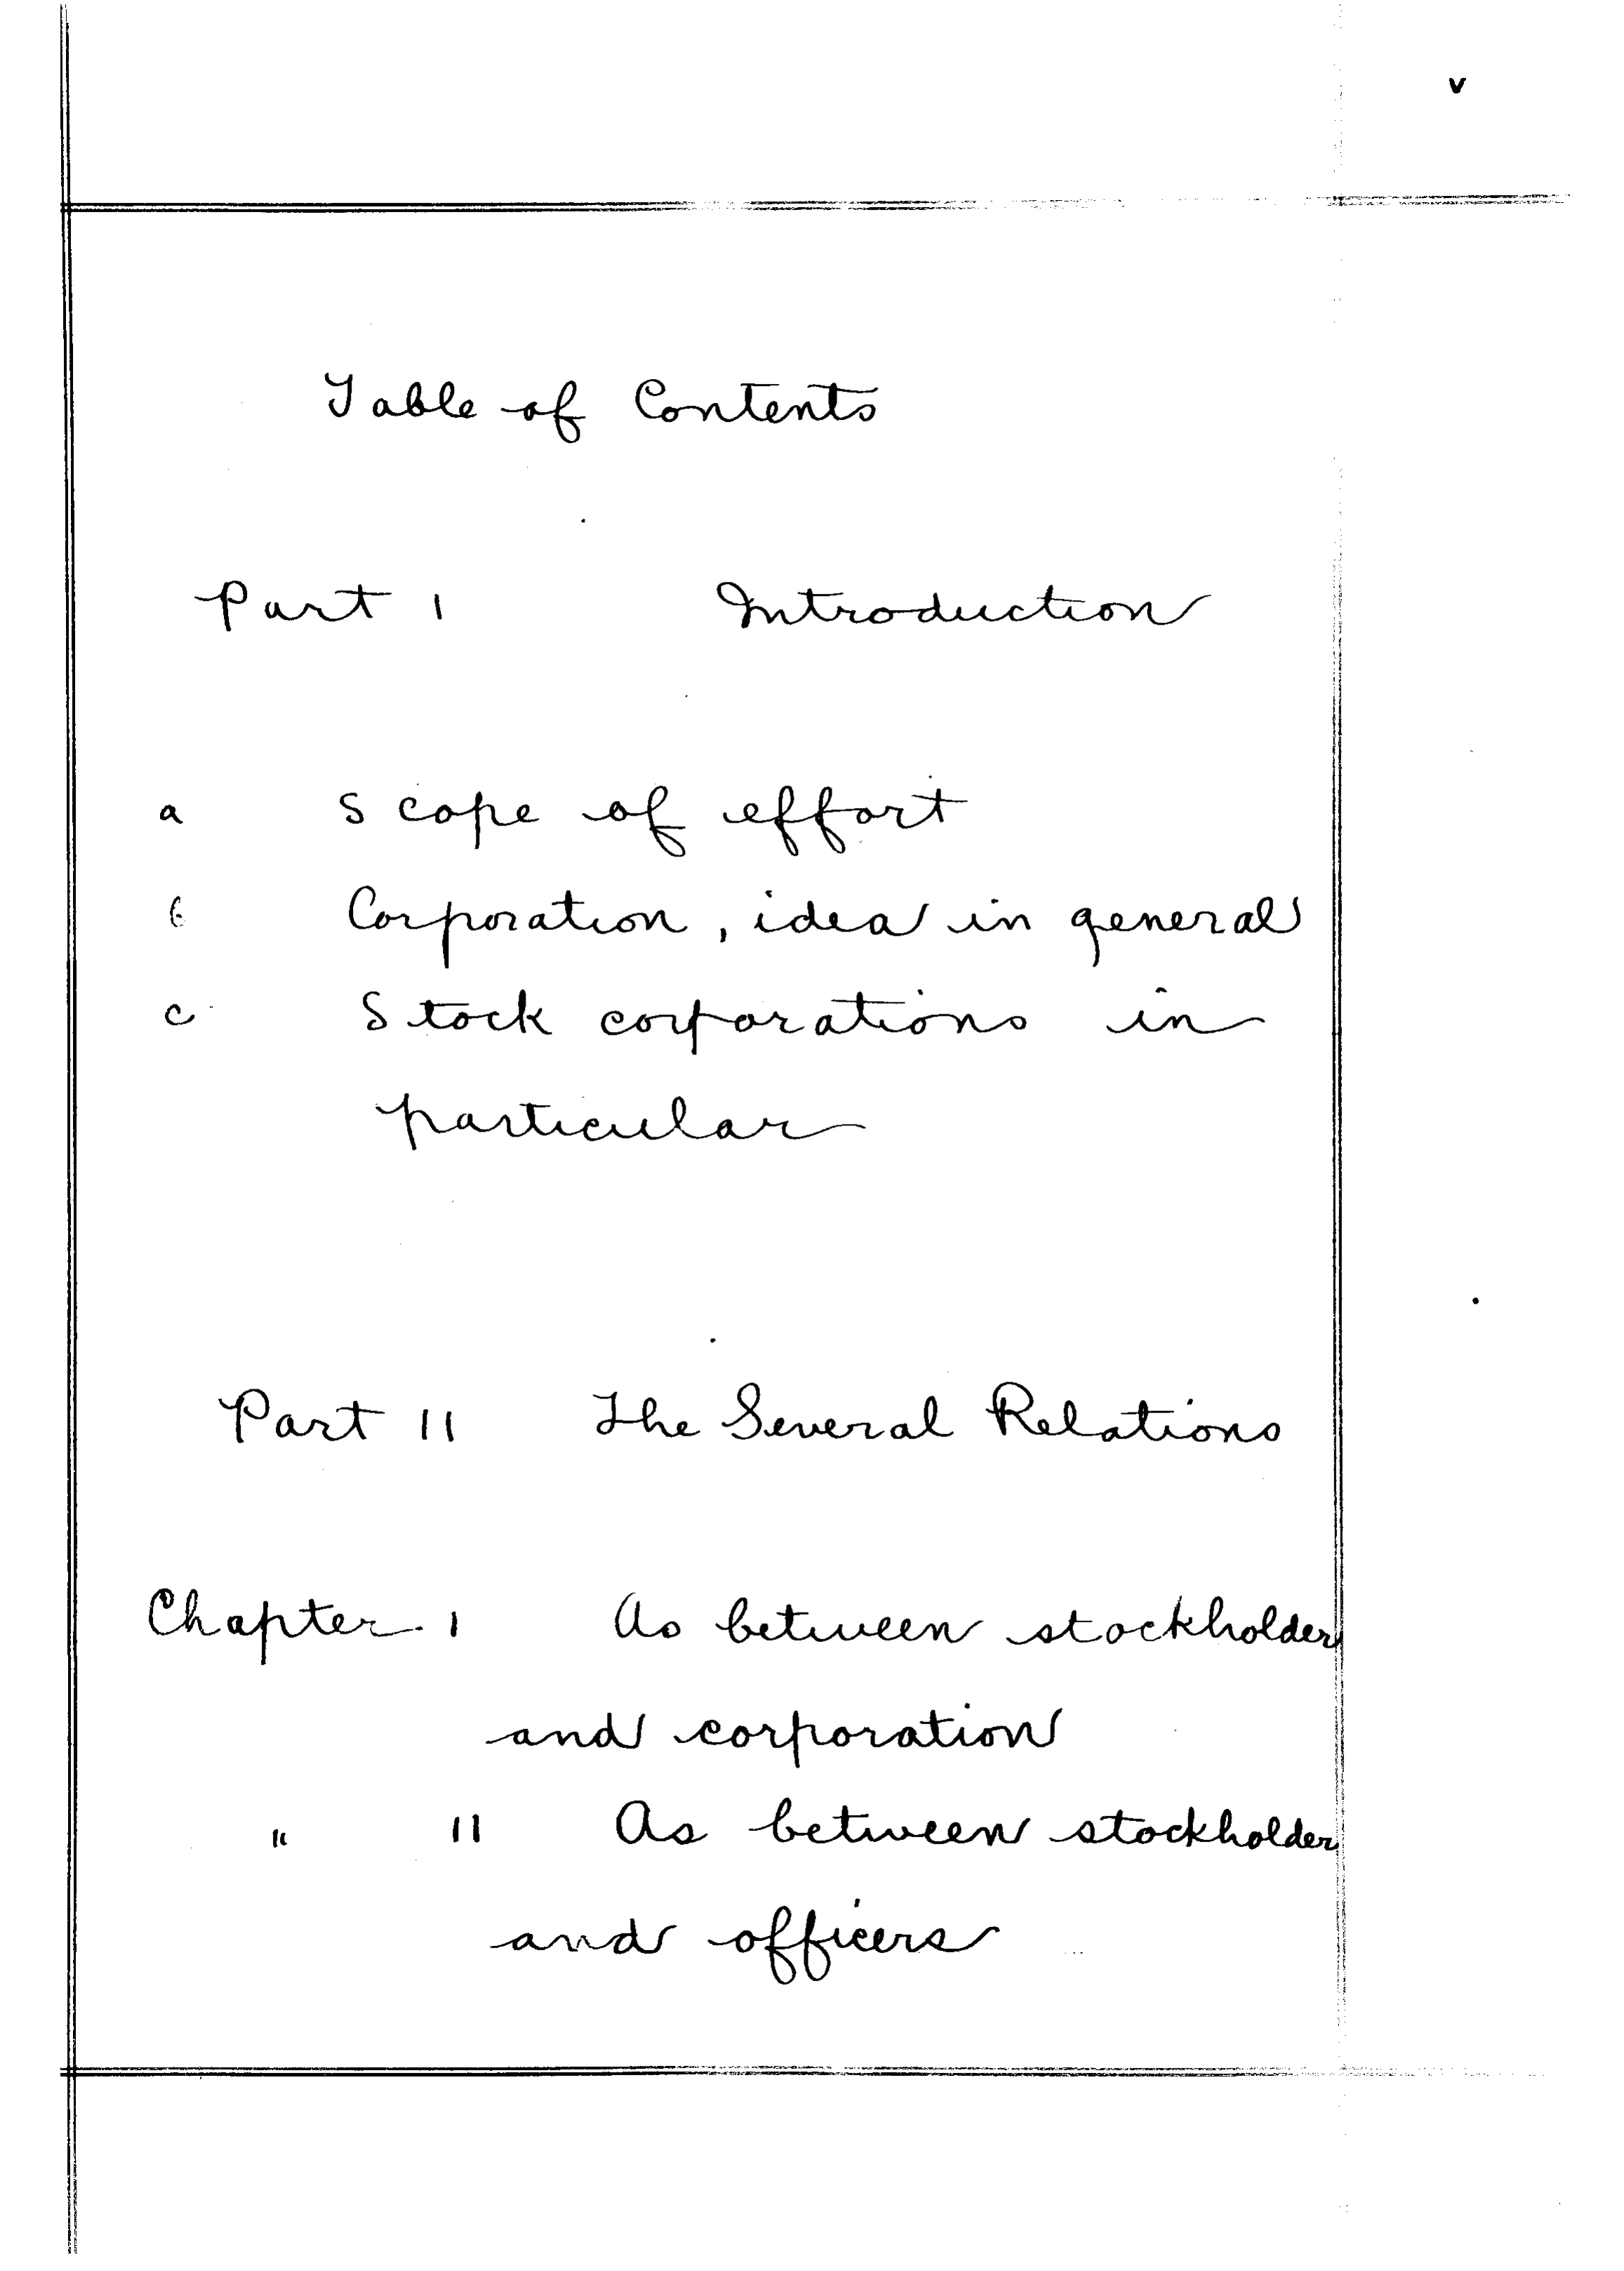 v
Table of Contents
Part I Introduction
a Scope of effort
b Corporation, idea in general
c Stock corporations in
particular
Part II The Several Relations
Chapter I As between stockholder
and corporation
" II As between stockholder
and officers